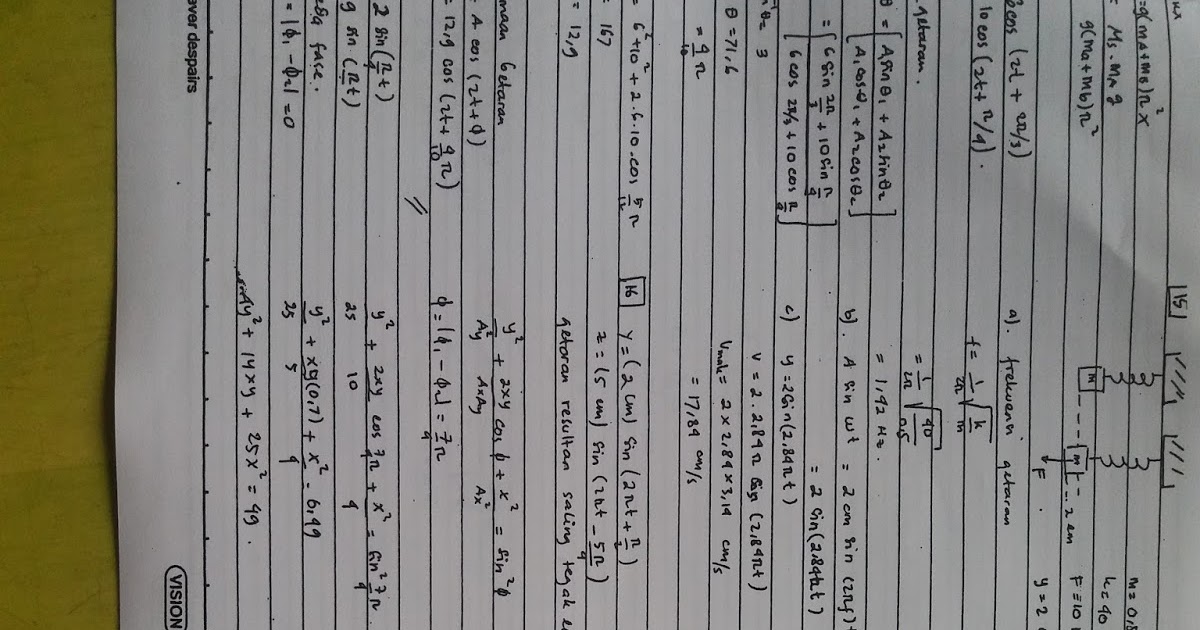 = g(mA+mB)π²x
= Ms . mA g
g(ma+mb)π²
cos (2t + 2π/3)
10 cos (2t + π/4) .
getaran .
θ = [A1 sin θ1 + A2 sin θ2]
[A1 cos θ1 + A2 cos θ2]
= [6 sin 2π/3 + 10 sin π/4]
[6 cos 2π/3 + 10 cos π/4]
3
θ = 71,6
= 4/10 π
= 6² + 10² + 2.6.10 . cos 5/12 π
= 167
= 12,9
Getaran
= A cos (2t + ϕ)
= 12,9 cos (2t + 4/10 π)
2 sin (π/4 t)
sin (π t)
fase .
= |ϕ1 - ϕ2| = 0
15
m
m
2 cm
F
m = 0,5
k = 40
F = 10
y = 2
a) . frekuensi getaran
f = 1/2π √k/m
= 1/2π √40/0,5
= 1,42 Hz .
b) . A sin ωt = 2 cm sin (2πf) t
= 2 sin (2.84πt)
c) y = 2 sin (2,84πt)
v = 2 . 2,84π sin (2,84πt)
Vmak = 2 x 2,84 x 3,14 cm/s
= 17,84 cm/s
16 y = (2 cm) sin (2πt + π/2)
z = (5 cm) sin (2πt - 5π/4)
getaran resultan saling tegak
y²/Ay² + 2xy/AxAy cos ϕ + x²/Ax² = sin² ϕ
ϕ = |ϕ1 - ϕ2| = 7/4 π
y²/25 + 2xy/10 cos 7/4 π + x²/4 = sin² 7/4 π
y²/25 + xy/5 (0,7) + x²/4 = 0,49
4y² + 14xy + 25x² = 49 .
ever despairs
VISION